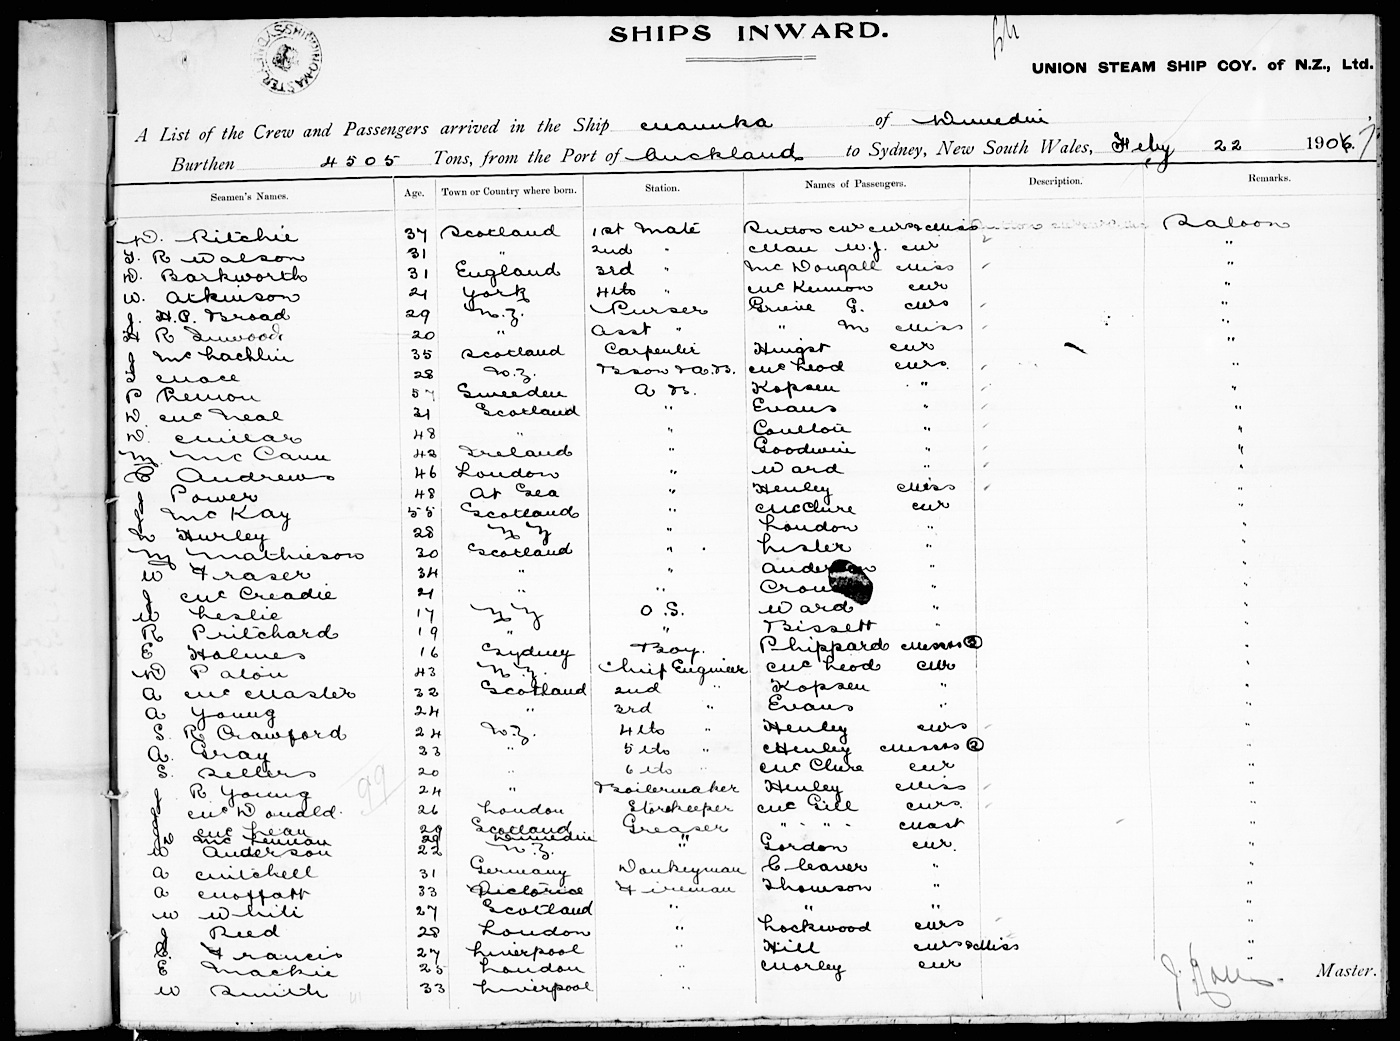 SHIPS INWARD.
UNION STEAM SHIP COY. of N.Z., Ltd.
A List of the Crew and Passengers arrived in the Ship Manuka of Dunedin
Burthen 4505 Tons, from the Port of Auckland to Sydney, New South Wales, Feby 22 1906. 7
Seamen's Names. Age. Town or Country where born. Station. Names of Passengers. Description. Remarks.
D. Ritchie 37 Scotland 1st Mate Sutton Mr Mrs & Miss Saloon
F. R Watson 31 " 2nd " Man W. J. Mr "
D. Barkworth 31 England 3rd " McDougall Miss "
W. Atkinson 21 York 4th " McKennon Mr "
H. P. Broad 29 N.Z. Purser Grieve G. Mrs "
H R Inwood 20 " Asst " " M Miss "
J McLachlin 35 Scotland Carpenter Hingst Mr "
J Mace 28 N.Z. Bson & A.B. McLeod Mrs. "
P Lemon 57 Sweeden A B. Kopsen " "
D. McNeal 31 Scotland " Evans " "
D. Millar 48 " " Coulton " "
M McCann 42 Ireland " Goodwin " "
Andrews 46 London " Ward " "
J Power 48 At Sea " Henley Miss "
J McKay 55 Scotland " McClure Mr "
L Hurley 28 N Z " London " "
M Mathieson 30 Scotland " Lister " "
W Fraser 34 " " Anderson " "
J McCreadie 21 " " "
W Leslie 17 N Z O.S. Ward " "
R Pritchard 19 " " Bissett " "
E Holmes 16 Sydney Boy. Phippard Misses 2 "
D Paton 43 N.Z. Chief Engineer McLeod Mr "
A McMaster 32 Scotland 2nd " Kopsen " "
A Young 24 " 3rd " Evans " "
S. R Crawford 24 N.Z. 4th " Henley Mrs "
A. Gray 33 " 5th " Henley Misses 2 "
S. Sellers 20 " 6th " McClure Mr "
R. Young 24 " Boilermaker Henley Miss "
J McDonald. 26 London Storekeeper McGill Mrs. "
McLean 29 Scotland Greaser " " Mast "
McLennan 29 Dunedin "
Anderson 22 N.Z. " Gordon Mr. "
A Mitchell 31 Germany Donkeyman Cleaver " "
A Moffatt 33 Victoria Fireman Thomson " "
W White 27 Scotland " " " "
Reed 28 London " Lockwood Mrs "
Francis 27 Liverpool " Hill Mrs & Miss "
E. Mackie 25 London " Morley Mr "
W Smith 33 Liverpool "
99
Master.